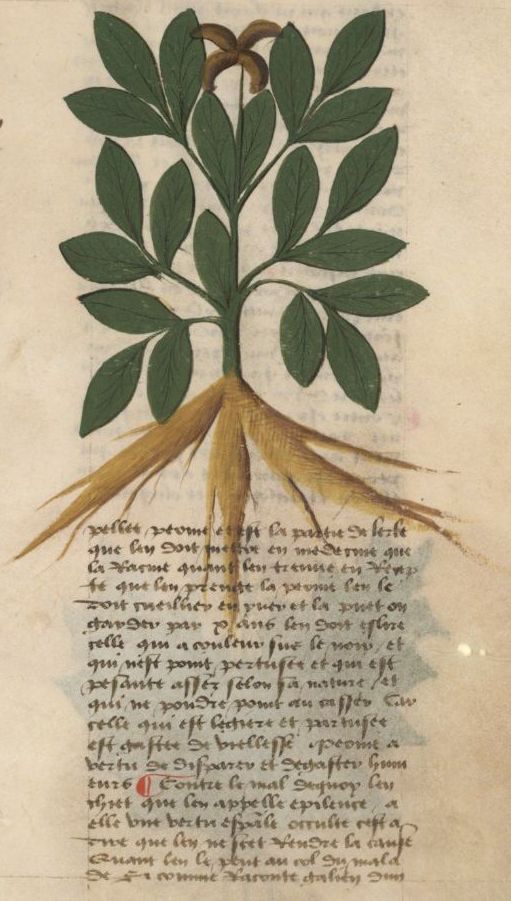 pellee peonie et est la partie de lerbe
que len doit mettre en medecine que
la Racine quant len treuue en Recep
te que len prengne la peonie len le
doit cueillier en yuer et la puet on
garder par x ans len doit eslire
celle qui a couleur sus le noir et
qui nest point pertusee et qui est
pesante assez selon sa nature et
qui ne poudre point au casser Car
celle qui est legiere et partuisee
est gastee de viellesse Peonie a
vertu de disparer et degaster hum
eurs Contre le mal dequoy len
chiet que len appelle epilence a
elle vne vertu espāle occulte cest a
dire que len ne scet Rendre la cause
Quant len le pent au col du mala
de Si comme Raconte galien dun